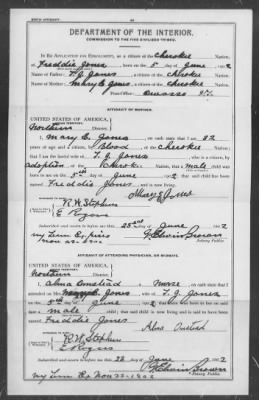 BIRTH AFFIDAVIT.
DEPARTMENT OF THE INTERIOR.
COMMISSION TO THE FIVE CIVILIZED TRIBES.
In Re Application for Enrollment, as a citizen of the Cherokee Nation,
of Freddie Jones, born on the 5 day of June, 1902
Name of Father: T. J. Jones, a citizen of the Cherokee Nation.
Name of Mother: Mary E. Jones, a citizen of the Cherokee Nation.
Post-Office: Owasso I.T.
AFFIDAVIT OF MOTHER.
UNITED STATES OF AMERICA,
Northern District.
I, Mary E. Jones, on oath state that I am 32
years of age and a citizen, by Blood, of the Cherokee Nation;
that I am the lawful wife of T. J. Jones, who is a citizen, by
adoption, of the Cherokee Nation; that a male child was
born to me on 5th day of June, 1902, that said child has been
named Freddie Jones, and is now living.
Mary E Jones
R. W. Stephen
E Rogers
Subscribed and sworn to before me this 23 day of June, 1902
Edwin Brown
Notary Public.
my Term Expires
Nov 23-1902
AFFIDAVIT OF ATTENDING PHYSICIAN, OR MIDWIFE.
UNITED STATES OF AMERICA,
Northern District.
I, Alma, a Nurse, on oath state that I
attended on, wife of T. J. Jones
on the 5th day of June, 1902; that there was born to her on said date a
male child; that said child is now living and is said to have been named
Freddie Jones
Alma
R. W. Stephen
E Rogers
Subscribed and sworn to before me this 23 day of June, 1902
Edwin Brown
Notary Public.
my Term Ex Nov 23-1902